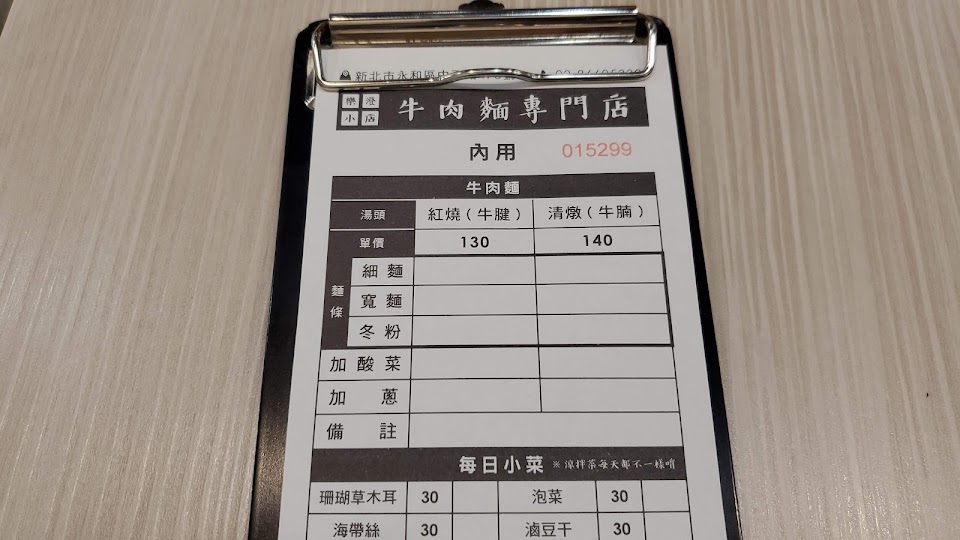 新北市永和區中
樂澄小店 牛肉麵專門店
內用 015299
牛肉麵
湯頭 紅燒(牛腱) 清燉(牛腩)
單價 130 140
麵條
細麵
寬麵
冬粉
加酸菜
加蔥
備註
每日小菜 ※涼拌菜每天都不一樣唷
珊瑚草木耳 30 泡菜 30
海帶絲 30 滷豆干 30